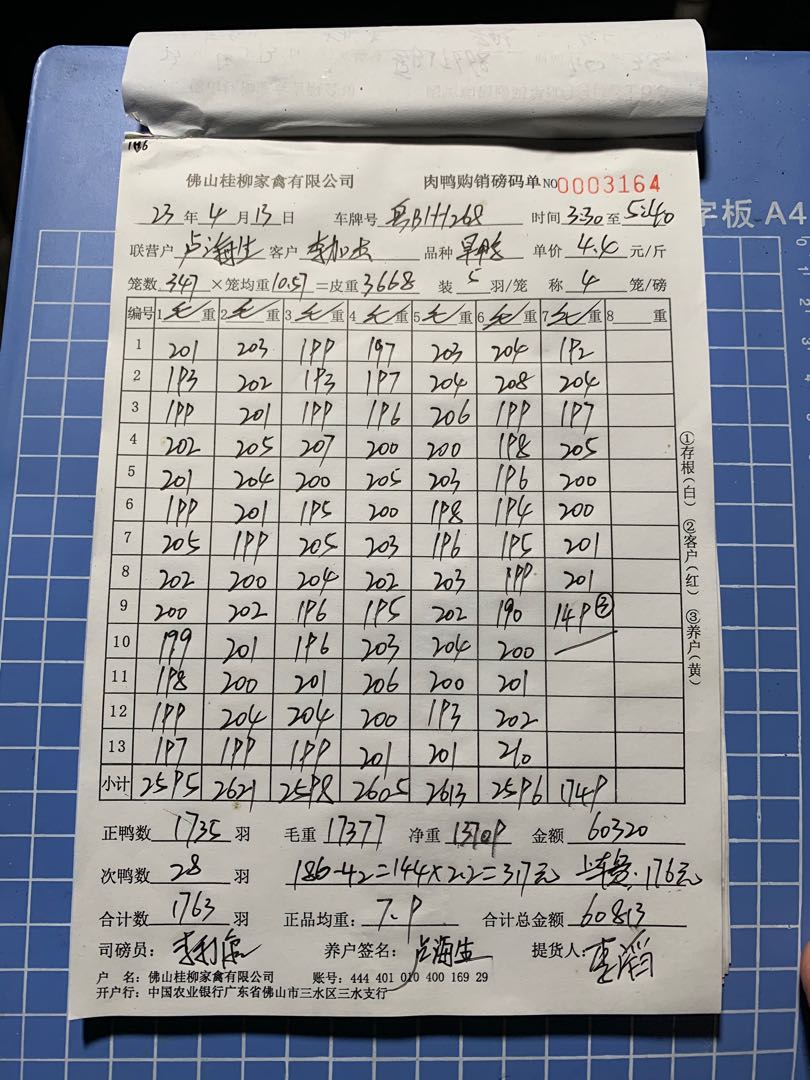 186
佛山桂柳家禽有限公司 肉鸭购销磅码单 NO 0003164
23 年 4 月 13 日 车牌号 粤BHH268 时间 3:30 至 5:40
联营户 卢海生 客户 李加杰 品种 单价 4.4 元/斤
笼数 347 ×笼均重 10.57 =皮重 3668 装 5 羽/笼 称 4 笼/磅
编号 1 毛 重 2 毛 重 3 毛 重 4 毛 重 5 毛 重 6 毛 重 7 毛 重 8 重
1 201 203 199 197 203 204 192
2 193 202 193 197 204 208 204
3 199 201 199 196 206 199 197
4 202 205 207 200 200 198 205
5 201 204 200 205 203 196 200
6 199 201 195 200 198 194 200
7 205 199 205 203 196 195 201
8 202 200 204 202 203 199 201
9 200 202 196 195 202 190 149 ③
10 199 201 196 203 204 200
11 198 200 201 206 200 201
12 199 204 204 200 193 202
13 197 199 199 201 201 210
小计 2595 2621 2598 2605 2613 2596 1749
正鸭数 1735 羽 毛重 17377 净重 13709 金额 60320
次鸭数 28 羽 186-42=144×2.2=317元 上车费:176元
合计数 1763 羽 正品均重: 7.9 合计总金额 60813
司磅员: 养户签名: 卢海生 提货人:
户 名: 佛山桂柳家禽有限公司 账号: 444 401 010 400 169 29
开户行: 中国农业银行广东省佛山市三水区三水支行
①存根(白) ②客户(红) ③养户(黄)
字板 A4